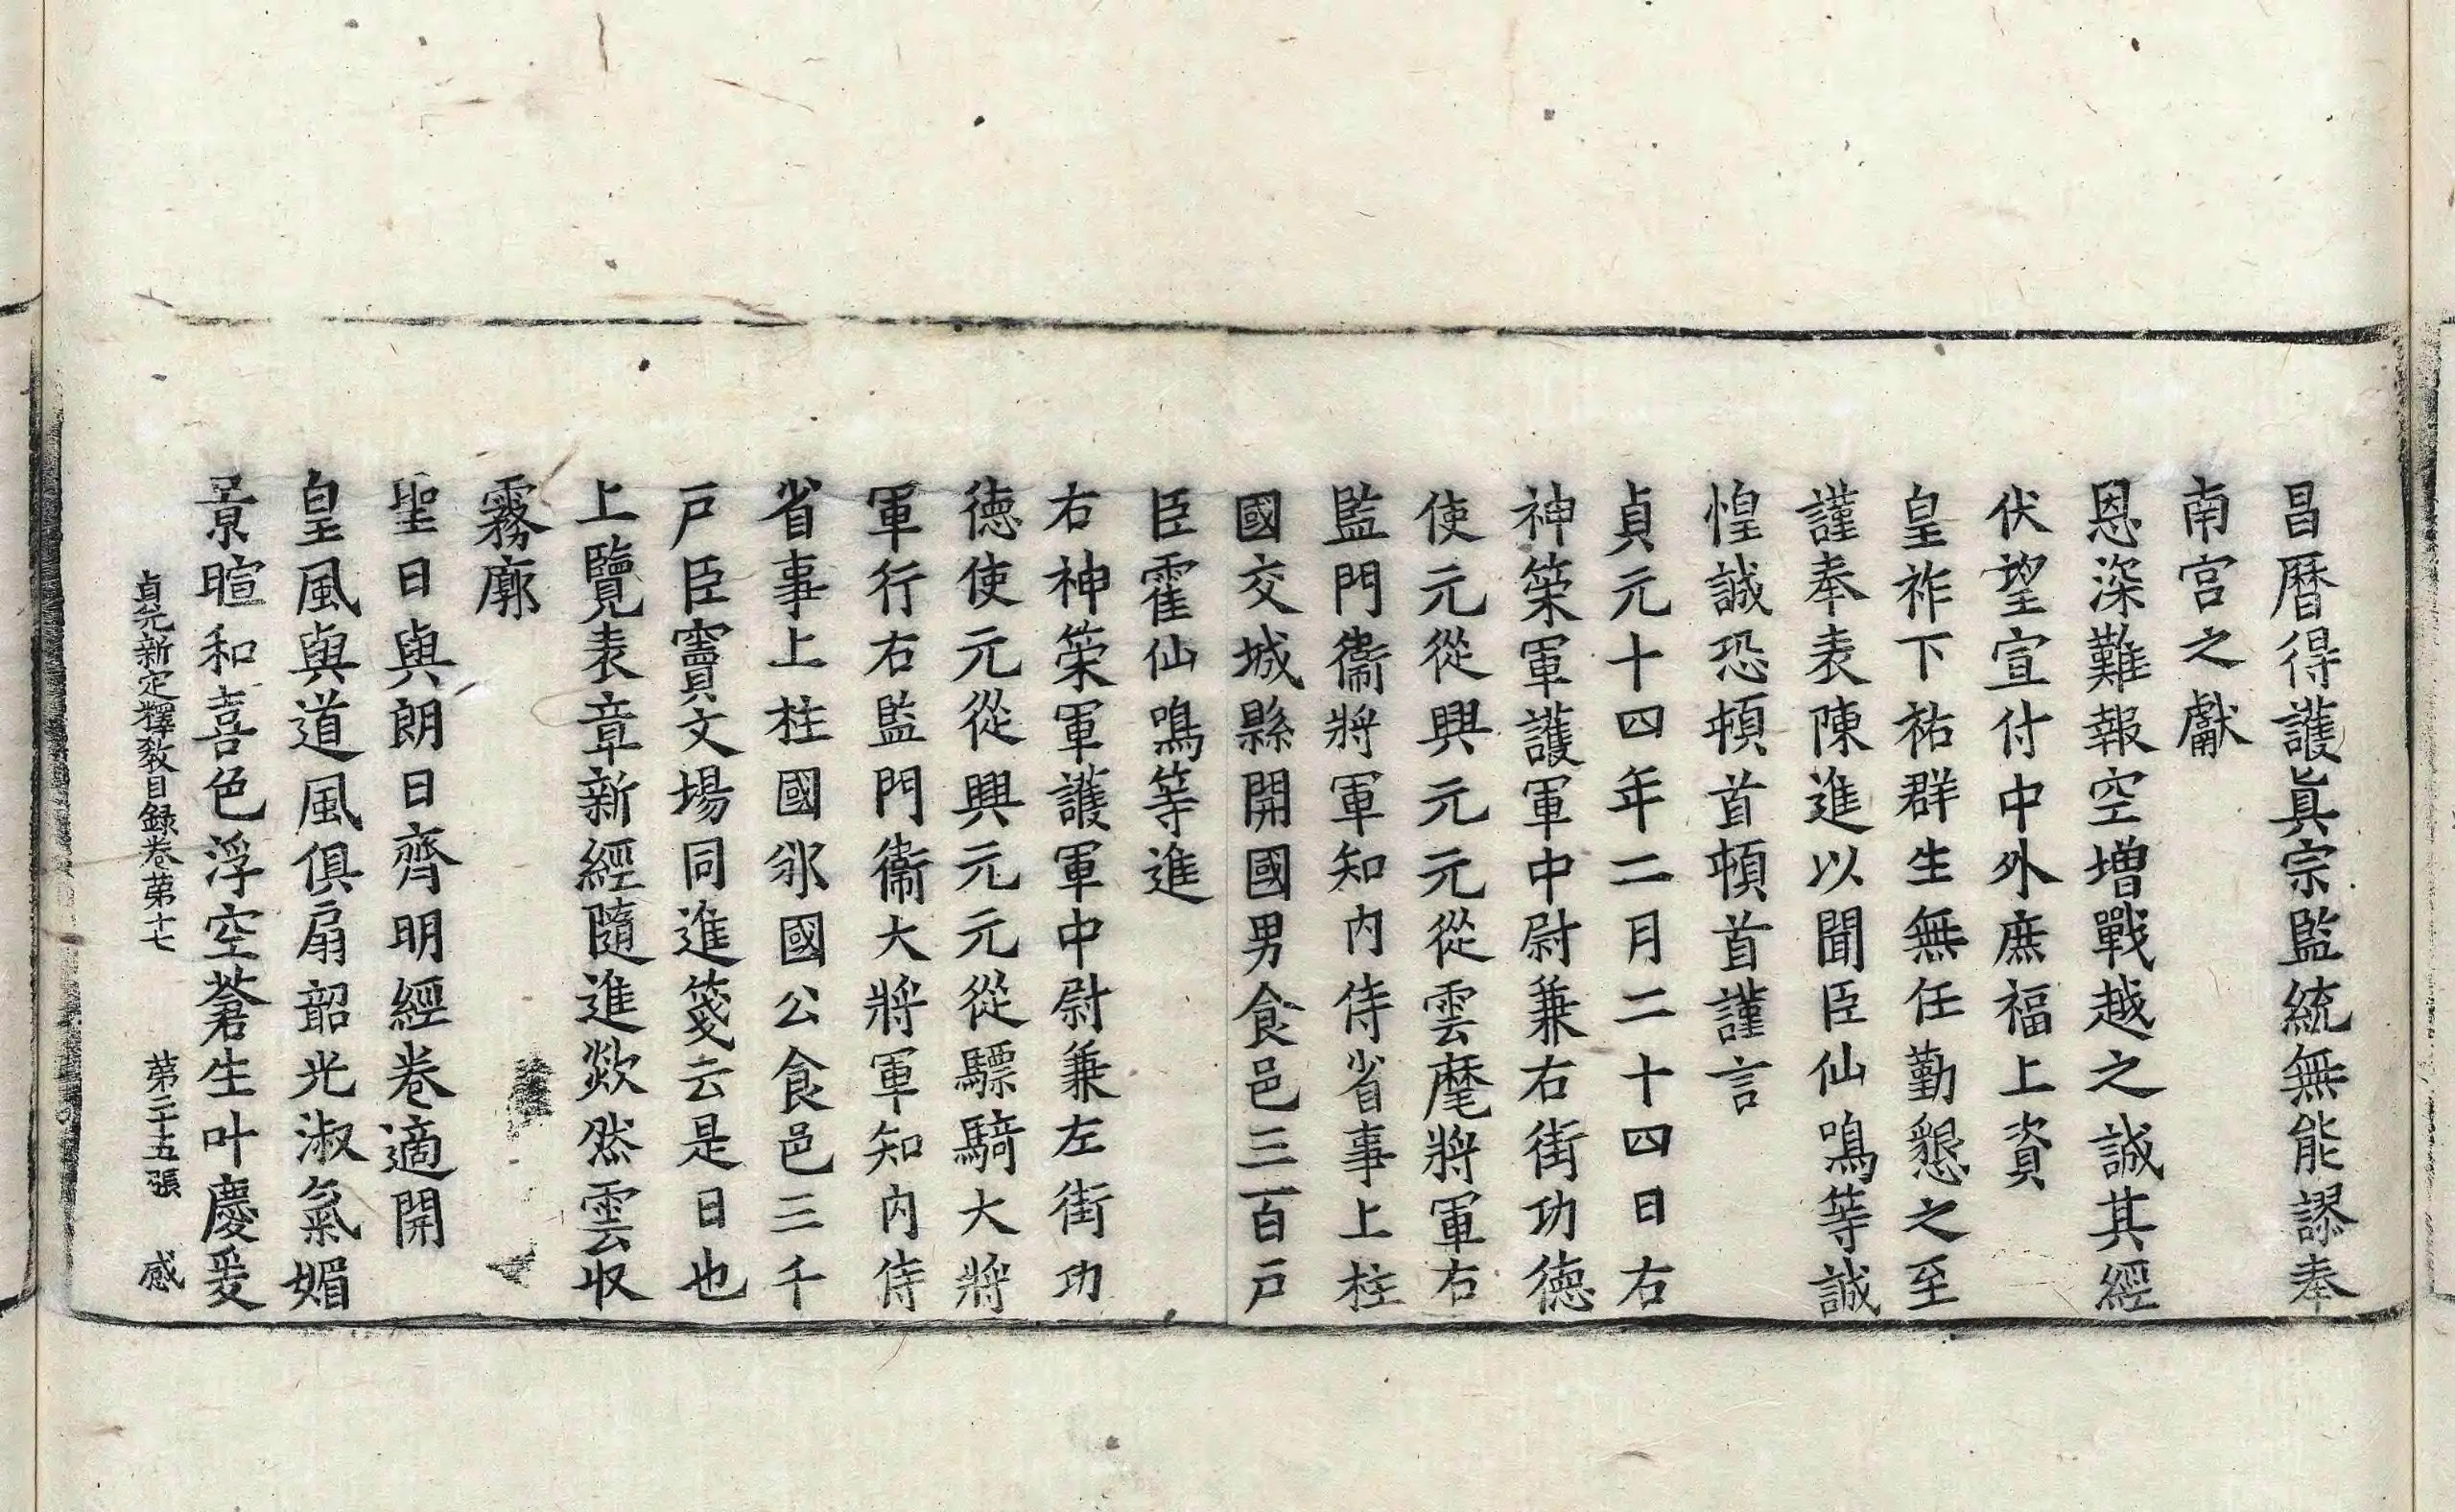 昌曆得護眞宗監統無能謬奉
南宮之獻
恩深難報空增戰越之誠其經
伏望宣付中外庶福上資
皇祚下祐群生無任勤懇之至
謹奉表陳進以聞臣仙鳴等誠
惶誠恐頓首頓首謹言
貞元十四年二月二十四日右
神策軍護軍中尉兼右街功德
使元從興元元從雲麾將軍右
監門衞將軍知內侍省事上柱
國交城縣開國男食邑三百戶
臣霍仙鳴等進
右神策軍護軍中尉兼左街功
德使元從興元元從驃騎大將
軍行右監門衞大將軍知內侍
省事上柱國邠國公食邑三千
戶臣竇文場同進箋云是日也
上覽表章新經隨進欻然雲収
霧廓
聖日與朗日齊明經卷適開
皇風與道風俱扇韶光淑氣媚
景暄和喜色浮空蒼生叶慶爰
貞元新定釋教目録卷苐十七　苐二十五張　感